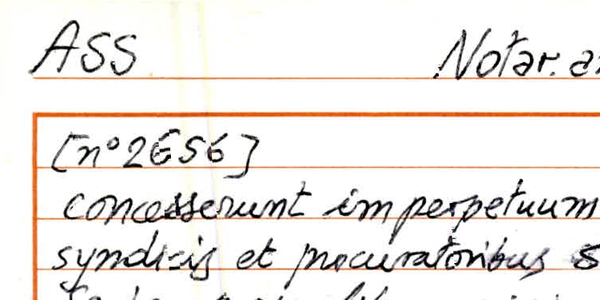 ASS Notar.
[n°2656]
concesserunt imperpetuum
syndicis et procuratoribus